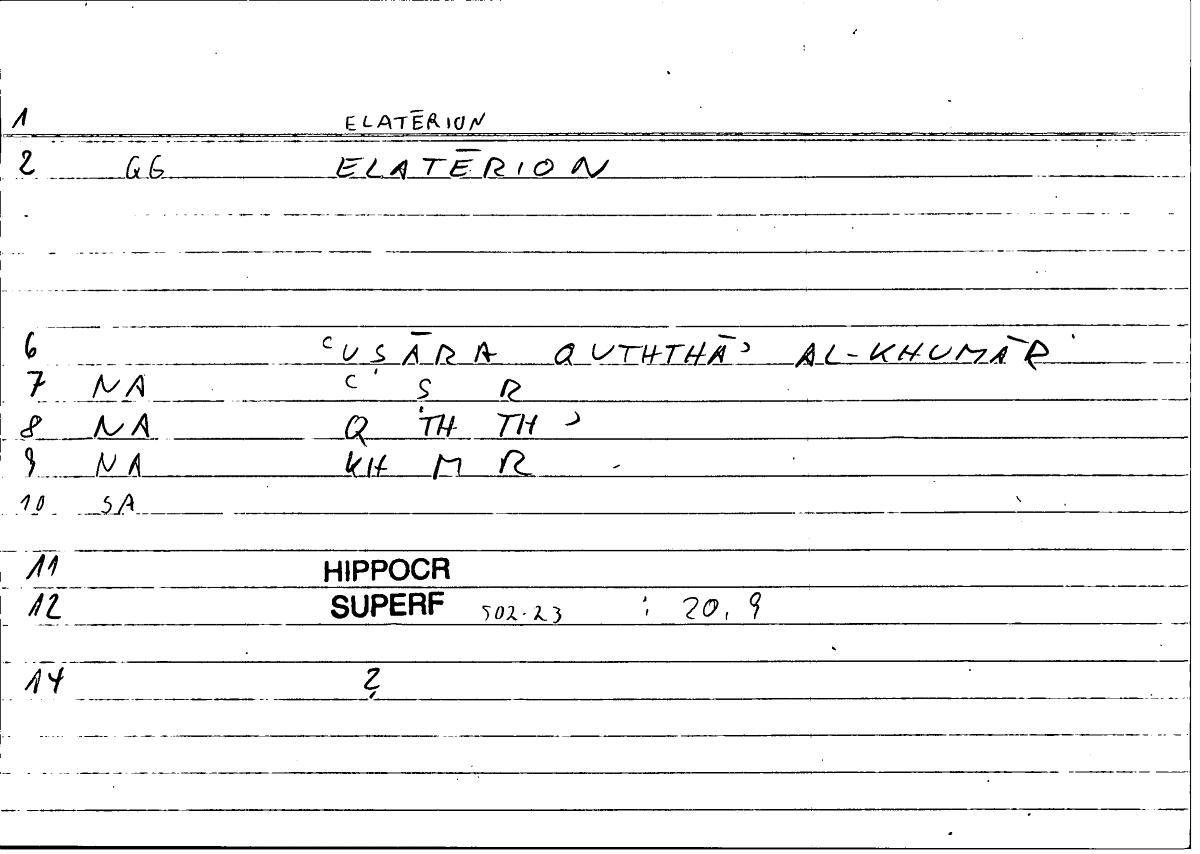 1 ELATĒRION
2 GG ELATĒRION
6 ʿUṢĀRA QUTHTHĀʾ AL-KHUMĀR
7 NA ʿ Ṣ R
8 NA Q TH TH ʾ
9 NA KH M R
10 SA
11 HIPPOCR
12 SUPERF 502.23 : 20,9
14 ?